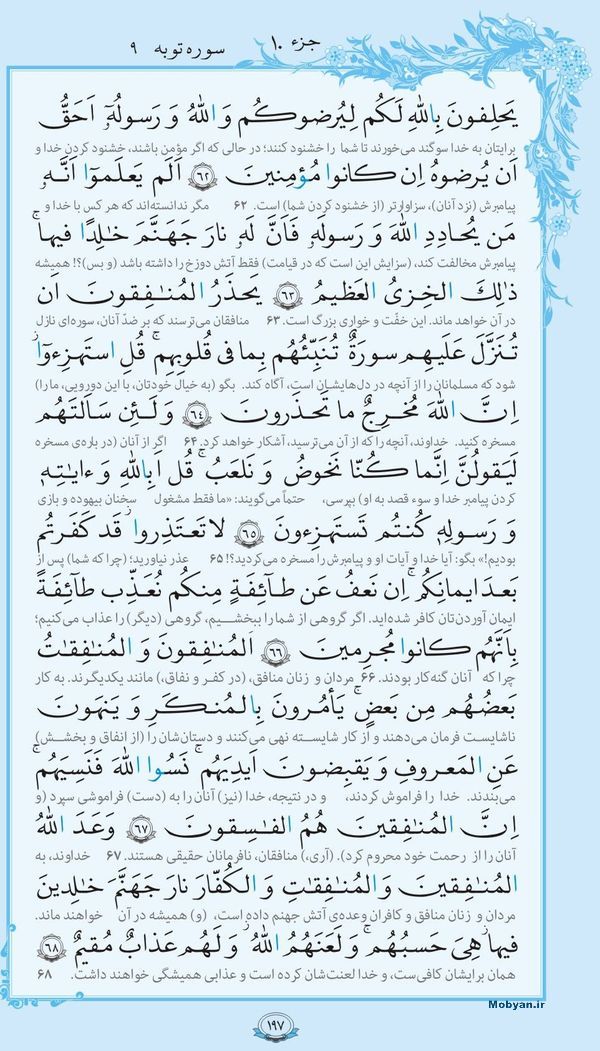 جزء ۱۰ سوره توبه ۹
یَحلِفونَ بِاللّٰهِ لَکُم لِیُرضوکُم وَ اللّٰهُ وَ رَسولُهُۥٓ اَحَقُّ
برایتان به خدا سوگند می‌خورند تا شما را خشنود کنند؛ در حالی که اگر مؤمن باشند، خشنود کردن خدا و
اَن یُرضوهُ اِن کانوا مُؤمِنینَ ﴿۶۲﴾ اَلَم یَعلَموٓا اَنَّهُۥ
پیامبرش (نزد آنان)، سزاوارتر (از خشنود کردن شما) است. ۶۲ مگر ندانسته‌اند که هر کس با خدا و
مَن یُحادِدِ اللّٰهَ وَ رَسولَهُۥ فَاَنَّ لَهُۥ نارَ جَهَنَّمَ خٰلِدًا فیها ۚ
پیامبرش مخالفت کند، (سزایش این است که در قیامت) فقط آتش دوزخ را داشته باشد (و بس)؟! همیشه
ذٰلِكَ الخِزیُ العَظیمُ ﴿۶۳﴾ یَحذَرُ المُنٰفِقونَ اَن
در آن خواهد ماند. این خفّت و خواری بزرگ است. ۶۳ منافقان می‌ترسند که بر ضدّ آنان، سوره‌ای نازل
تُنَزَّلَ عَلَیهِم سورَةٌ تُنَبِّئُهُم بِما فی قُلوبِهِم ۚ قُلِ استَهزِءوٓا
شود که مسلمانان را از آنچه در دل‌هایشان است، آگاه کند. بگو (به خیال خودتان، با این دورویی، ما را)
اِنَّ اللّٰهَ مُخرِجٌ ما تَحذَرونَ ﴿۶۴﴾ وَ لَئِن سَاَلتَهُم
مسخره کنید. خداوند، آنچه را که از آن می‌ترسید، آشکار خواهد کرد. ۶۴ اگر از آنان (درباره‌ی مسخره
لَیَقولُنَّ اِنَّما کُنّا نَخوضُ وَ نَلعَبُ ۚ قُل اَبِاللّٰهِ وَ ءایٰتِهِۦ
کردن پیامبر خدا و سوء قصد به او) بپرسی، حتماً می‌گویند: «ما فقط مشغول سخنان بیهوده و بازی
وَ رَسولِهِۦ کُنتُم تَستَهزِءونَ ﴿۶۵﴾ لا تَعتَذِروا قَد کَفَرتُم
بودیم!» بگو: آیا خدا و آیات او و پیامبرش را مسخره می‌کردید؟! ۶۵ عذر نیاورید؛ (چرا که شما) پس از
بَعدَ ایمانِکُم ۚ اِن نَعفُ عَن طآئِفَةٍ مِنکُم نُعَذِّب طآئِفَةً
ایمان آوردن‌تان کافر شده‌اید. اگر گروهی از شما را ببخشیم، گروهی (دیگر) را عذاب می‌کنیم؛
بِاَنَّهُم کانوا مُجرِمینَ ﴿۶۶﴾ اَلمُنٰفِقونَ وَ المُنٰفِقٰتُ
چرا که آنان گنه‌کار بودند. ۶۶ مردان و زنان منافق، (در کفر و نفاق)، مانند یکدیگرند. به کار
بَعضُهُم مِن بَعضٍ ۚ یَأمُرونَ بِالمُنکَرِ وَ یَنهَونَ
ناشایست فرمان می‌دهند و از کار شایسته نهی می‌کنند و دستان‌شان را (از انفاق و بخشش)
عَنِ المَعروفِ وَ یَقبِضونَ اَیدِیَهُم ۚ نَسُوا اللّٰهَ فَنَسِیَهُم ۗ
می‌بندند. خدا را فراموش کردند، و در نتیجه، خدا (نیز) آنان را به (دست) فراموشی سپرد (و
اِنَّ المُنٰفِقینَ هُمُ الفٰسِقونَ ﴿۶۷﴾ وَعَدَ اللّٰهُ
آنان را از رحمت خود محروم کرد). (آری،) منافقان، نافرمانان حقیقی هستند. ۶۷ خداوند، به
المُنٰفِقینَ وَالمُنٰفِقٰتِ وَ الکُفّارَ نارَ جَهَنَّمَ خٰلِدینَ
مردان و زنان منافق و کافران وعده‌ی آتش جهنم داده است، (و) همیشه در آن خواهند ماند.
فیها ۚ هِیَ حَسبُهُم ۚ وَ لَعَنَهُمُ اللّٰهُ ۖ وَ لَهُم عَذابٌ مُقیمٌ ﴿۶۸﴾
همان برایشان کافی‌ست، و خدا لعنت‌شان کرده است و عذابی همیشگی خواهند داشت. ۶۸
Mobyan.ir
۱۹۷